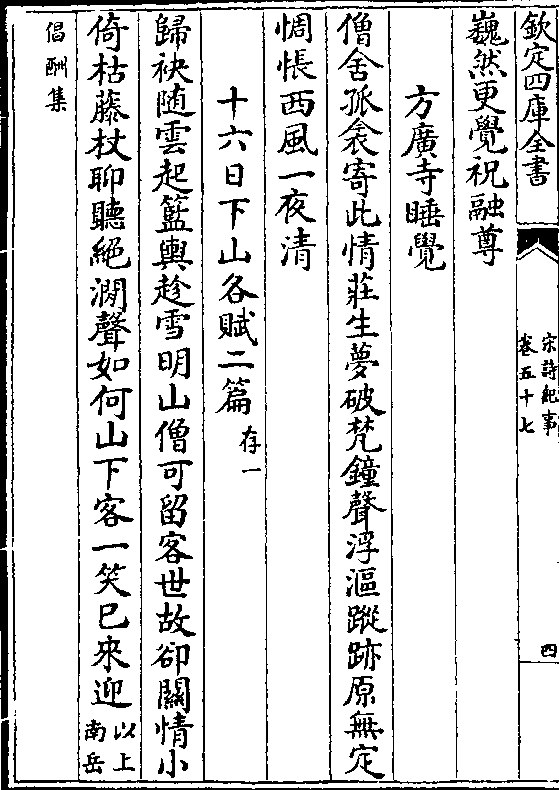 欽定四庫全書
宋詩紀事
卷五十七
四
巍然更覺祝融尊
方廣寺睡覺
僧舍孤衾寄此情莊生夢破梵鐘聲浮漚蹤跡原無定
惆悵西風一夜清
十六日下山各賦二篇存一
歸袂随雲起籃輿趁雪明山僧可留客世故卻關情小
倚枯藤杖聊聽絕澗聲如何山下客一笑已來迎以上南岳
倡酬集